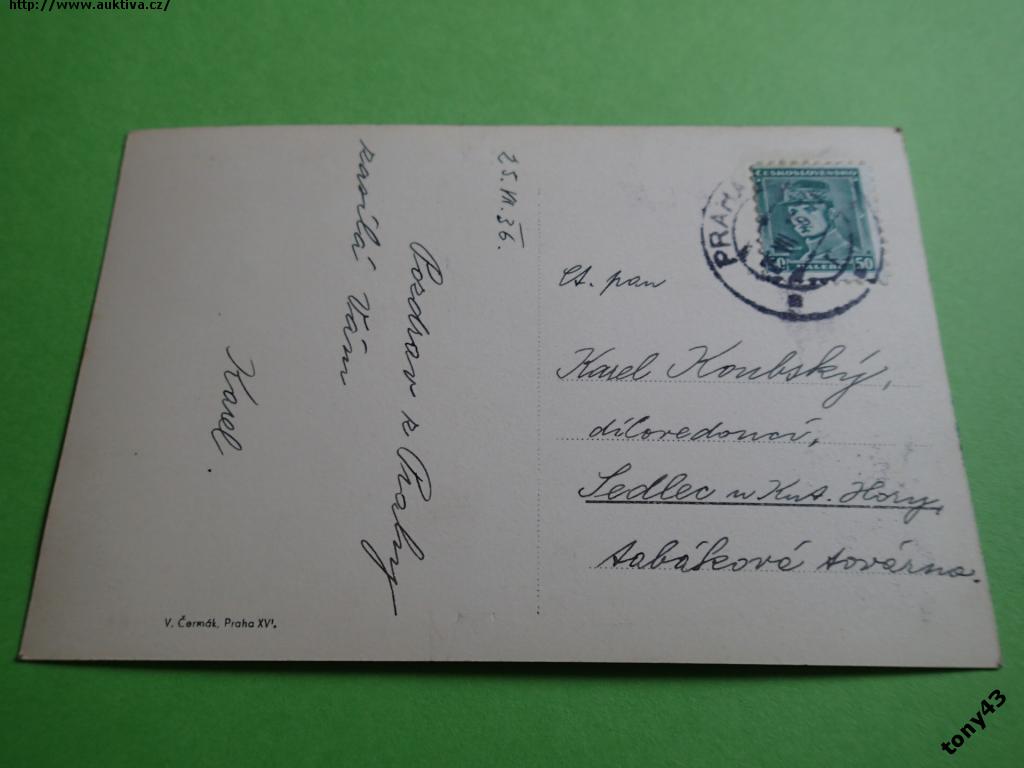 http://www.auktiva.cz/
25.VI.36.
Pozdrav z Prahy
zasílá Vám
Karel.
V. Čermák, Praha XVI.
ČESKOSLOVENSKO
50
HALÉŘ
50
PRAHA
Ct. pan
Karel Koubský,
dílovedoucí,
Sedlec u Kut. Hory,
tabáková továrna.
tony43